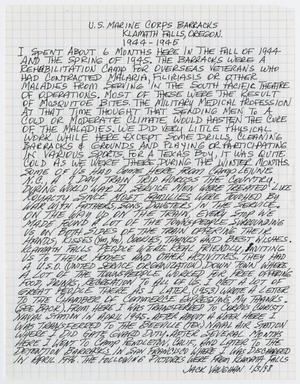 U.S. MARINE CORPS BARRACKS
KLAMATH FALLS, OREGON.
1944-1945
I SPENT ABOUT 6 MONTHS HERE IN THE FALL OF 1944
AND THE SPRING OF 1945. THE BARRACKS WERE A
REHABILITATION CAMP FOR OVERSEAS VETERANS WHO
HAD CONTRACTED MALARIA, FILIRIASIS OR OTHER
MALADIES FROM SERVING IN THE SOUTH PACIFIC THEATRE
OF OPERATIONS. MOST OF THESE WERE THE RESULT
OF MOSQUITOE BITES. THE MILITARY MEDICAL PROFESSION
AT THAT TIME THOUGHT THAT SENDING MEN TO A
COLD OR MODERATE CLIMATE WOULD HASTEN THE CURE
OF THE MALADIES. WE DID VERY LITTLE PHYSICAL
WORK WHILE HERE EXCEPT SOME DRILLS, CLEANING
BARRACKS & GROUNDS AND PLAYING OR PARTICIPATING
IN VARIOUS SPORTS. FOR A TEXAS BOY, IT WAS QUITE
COLD AS WE WERE THERE DURING THE WINTER MONTHS.
SOME OF US HAD COME HERE FROM CAMP LEJUNE
N.C. A DAY TRAIN TRIP ACROSS THE COUNTRY.
DURING WORLD WAR II, SERVICE MEN WERE TREATED LIKE
ROYALTY SINCE MOST FAMILIES WERE TOUCHED BY
WAR WITH FATHERS, SONS, DAUGHTERS IN THE SERVICE.
ON THE WAY UP ON THE TRAIN, EVERY STOP WE
MADE FOUND A LOT OF THE TOWNSPEOPLE SURROUNDING
US ON BOTH SIDES OF THE TRAIN OFFERING THEIR
HANDS, KISSES COOKIES, THANKS AND BEST WISHES.
KLAMATH FALLS PEOPLE WERE REAL FRIENDLY INVITING
US TO THEIR HOMES AND OTHER ACTIVITIES. THEY HAD
A U.S.O. (UNITED SERVICE ORGANIZATION) DOWN TOWN WHERE
A LOT OF THE TOWNSPEOPLE WORKED FOR FREE OFFERING
FOOD, DRINKS, RECREATION TO ALL OF US. I MET A LOT OF
PEOPLE THERE AS I LATER WROTE A LETTER
TO THE CHAMBER OF COMMERCE EXPRESSING MY THANKS.
(SEE BACK). FROM HERE I WAS TRANSFERRED TO CORPUS CHRISTI
NAVAL STATION IN APRIL 1945. AFTER ABOUT A WEEK HERE I
WAS TRANSFERRED TO THE BEEVILLE (TEX) NAVAL AIR STATION
WHERE I DID GATE GUARD UNTIL AFTER SEVERAL MONTHS
HERE I WENT TO CAMP PENDLETON, CALIF. AND LATER TO THE
DETENTION BARRACKS IN SAN FRANCISCO WHERE I WAS DISCHARGED
IN APRIL 1946. THE FOLLOWING PICTURES WERE FROM KLAMATH FALLS
JACK VAUGHAN 1/31/98